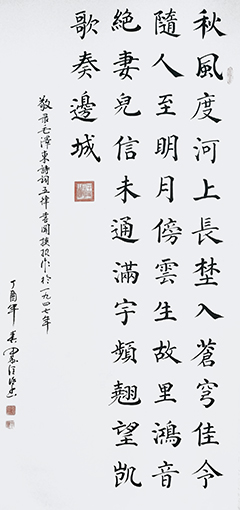 秋風度河上長埜入蒼穹佳令
隨人至明月傍雲生故里鴻音
絕妻兒信未通滿宇頻翹望凱
歌奏邊城
敬录毛澤東詩詞五律喜聞捷报作於一九四七年
丁酉年